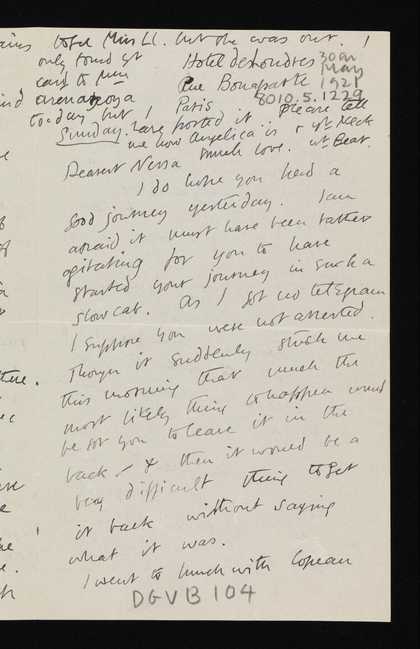 to see Miss Ll. but she was out. I
only found yr
card to
to-day but I
Hotel de Londres
Rue Bonaparte
Paris
30th
May
1921
8010.5.1229
Sunday. have posted it. Please tell
me how Angelica is & yr neck
much love.
Dearest Nessa
I do hope you had a
good journey yesterday. I am
afraid it must have been rather
agitating for you to have
started your journey in such a
slow cab. As I got no telegram
I suppose you were not arrested.
Though it suddenly struck me
this morning that much the
most likely thing to happen would
be for you to leave it in the
back & then it would be a
very difficult thing to get
it back without saying
what it was.
I went to lunch with Copeau
there.
DGVB 104